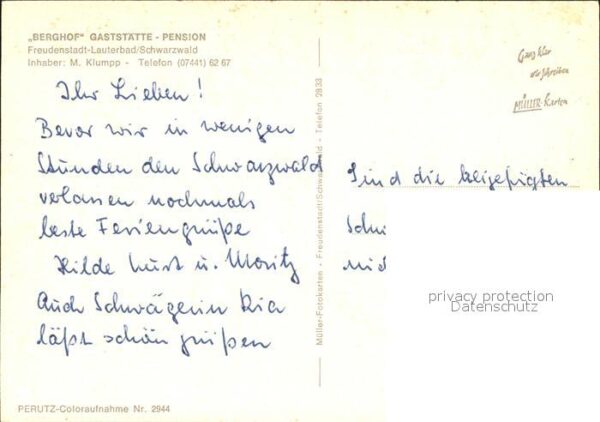 „BERGHOF" GASTSTÄTTE - PENSION
Freudenstadt-Lauterbad/Schwarzwald
Inhaber: M. Klumpp - Telefon (07441) 62 67
Ihr Lieben!
Bevor wir in wenigen
Stunden den Schwarzwald
verlassen nochmals
beste Feriengrüße
Hilde Kurt u. Moritz
Auch Schwägerin Ria
läßt schön grüßen
PERUTZ-Coloraufnahme Nr. 2944
Müller-Fotokarten - Freudenstadt/Schwarzwald - Telefon 2833
Ganz klar
wir schreiben
MÜLLER-Karten
Sind die beigefügten
privacy protection
Datenschutz